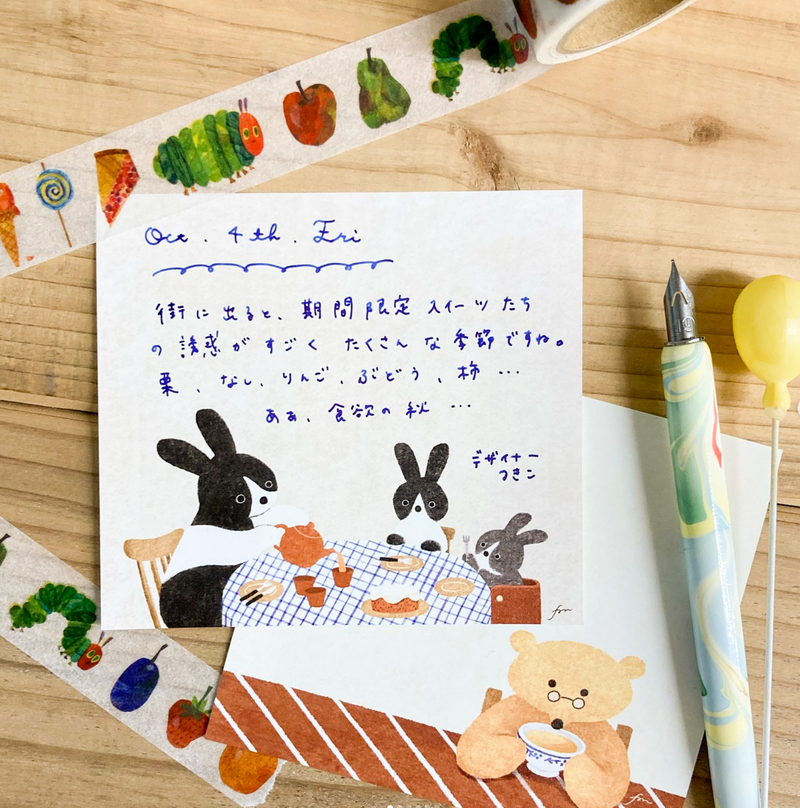 Oct. 4th. Fri
街に出ると、期間限定スイーツたち
の誘惑がすごくたくさんな季節ですね。
栗、なし、りんご、ぶどう、柿…
あぁ、食欲の秋…
デザイナー
つきこ